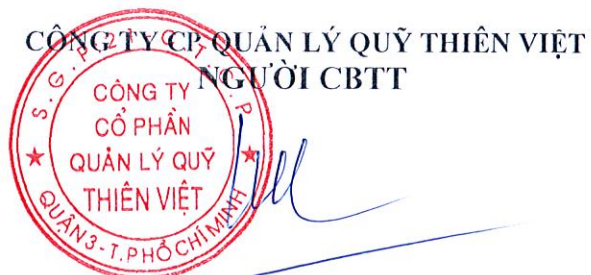 CÔNG TY CP QUẢN LÝ QUỸ THIÊN VIỆT
NGƯỜI CBTT
CÔNG TY
CỔ PHẦN
QUẢN LÝ QUỸ
THIÊN VIỆT
QUẬN 3 - T.PHỐ CHÍ MINH